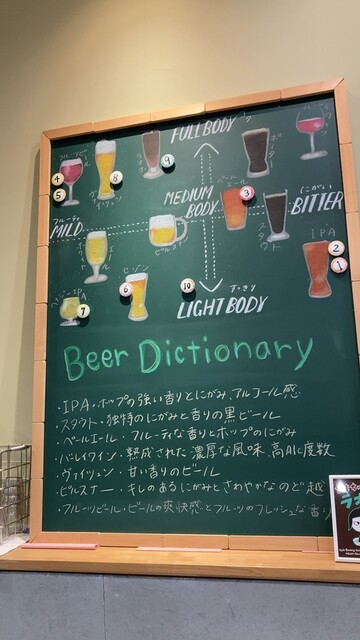 FULL BODY
フルーツビール
ヴァイツェン
ポーター
4
5
8
9
MEDIUM BODY
ペールエール
3
にがい
BITTER
スタウト
フルーティ
MILD
ピルスナー
IPA
2
1
6
10
7
すっきり
LIGHT BODY
Beer Dictionary
・IPA・ホップの強い香りとにがみ、アルコール感
・スタウト・独特のにがみと香りの黒ビール
・ペールエール・フルーティな香りとホップのにがみ
・バレイワイン・熟成された濃厚な風味、高Alc度数
・ヴァイツェン・甘い香りのビール
・ピルスナー・キレのあるにがみとさわやかなのど越
・フルーツビール・ビールの爽快感とフルーツのフレッシュな香り